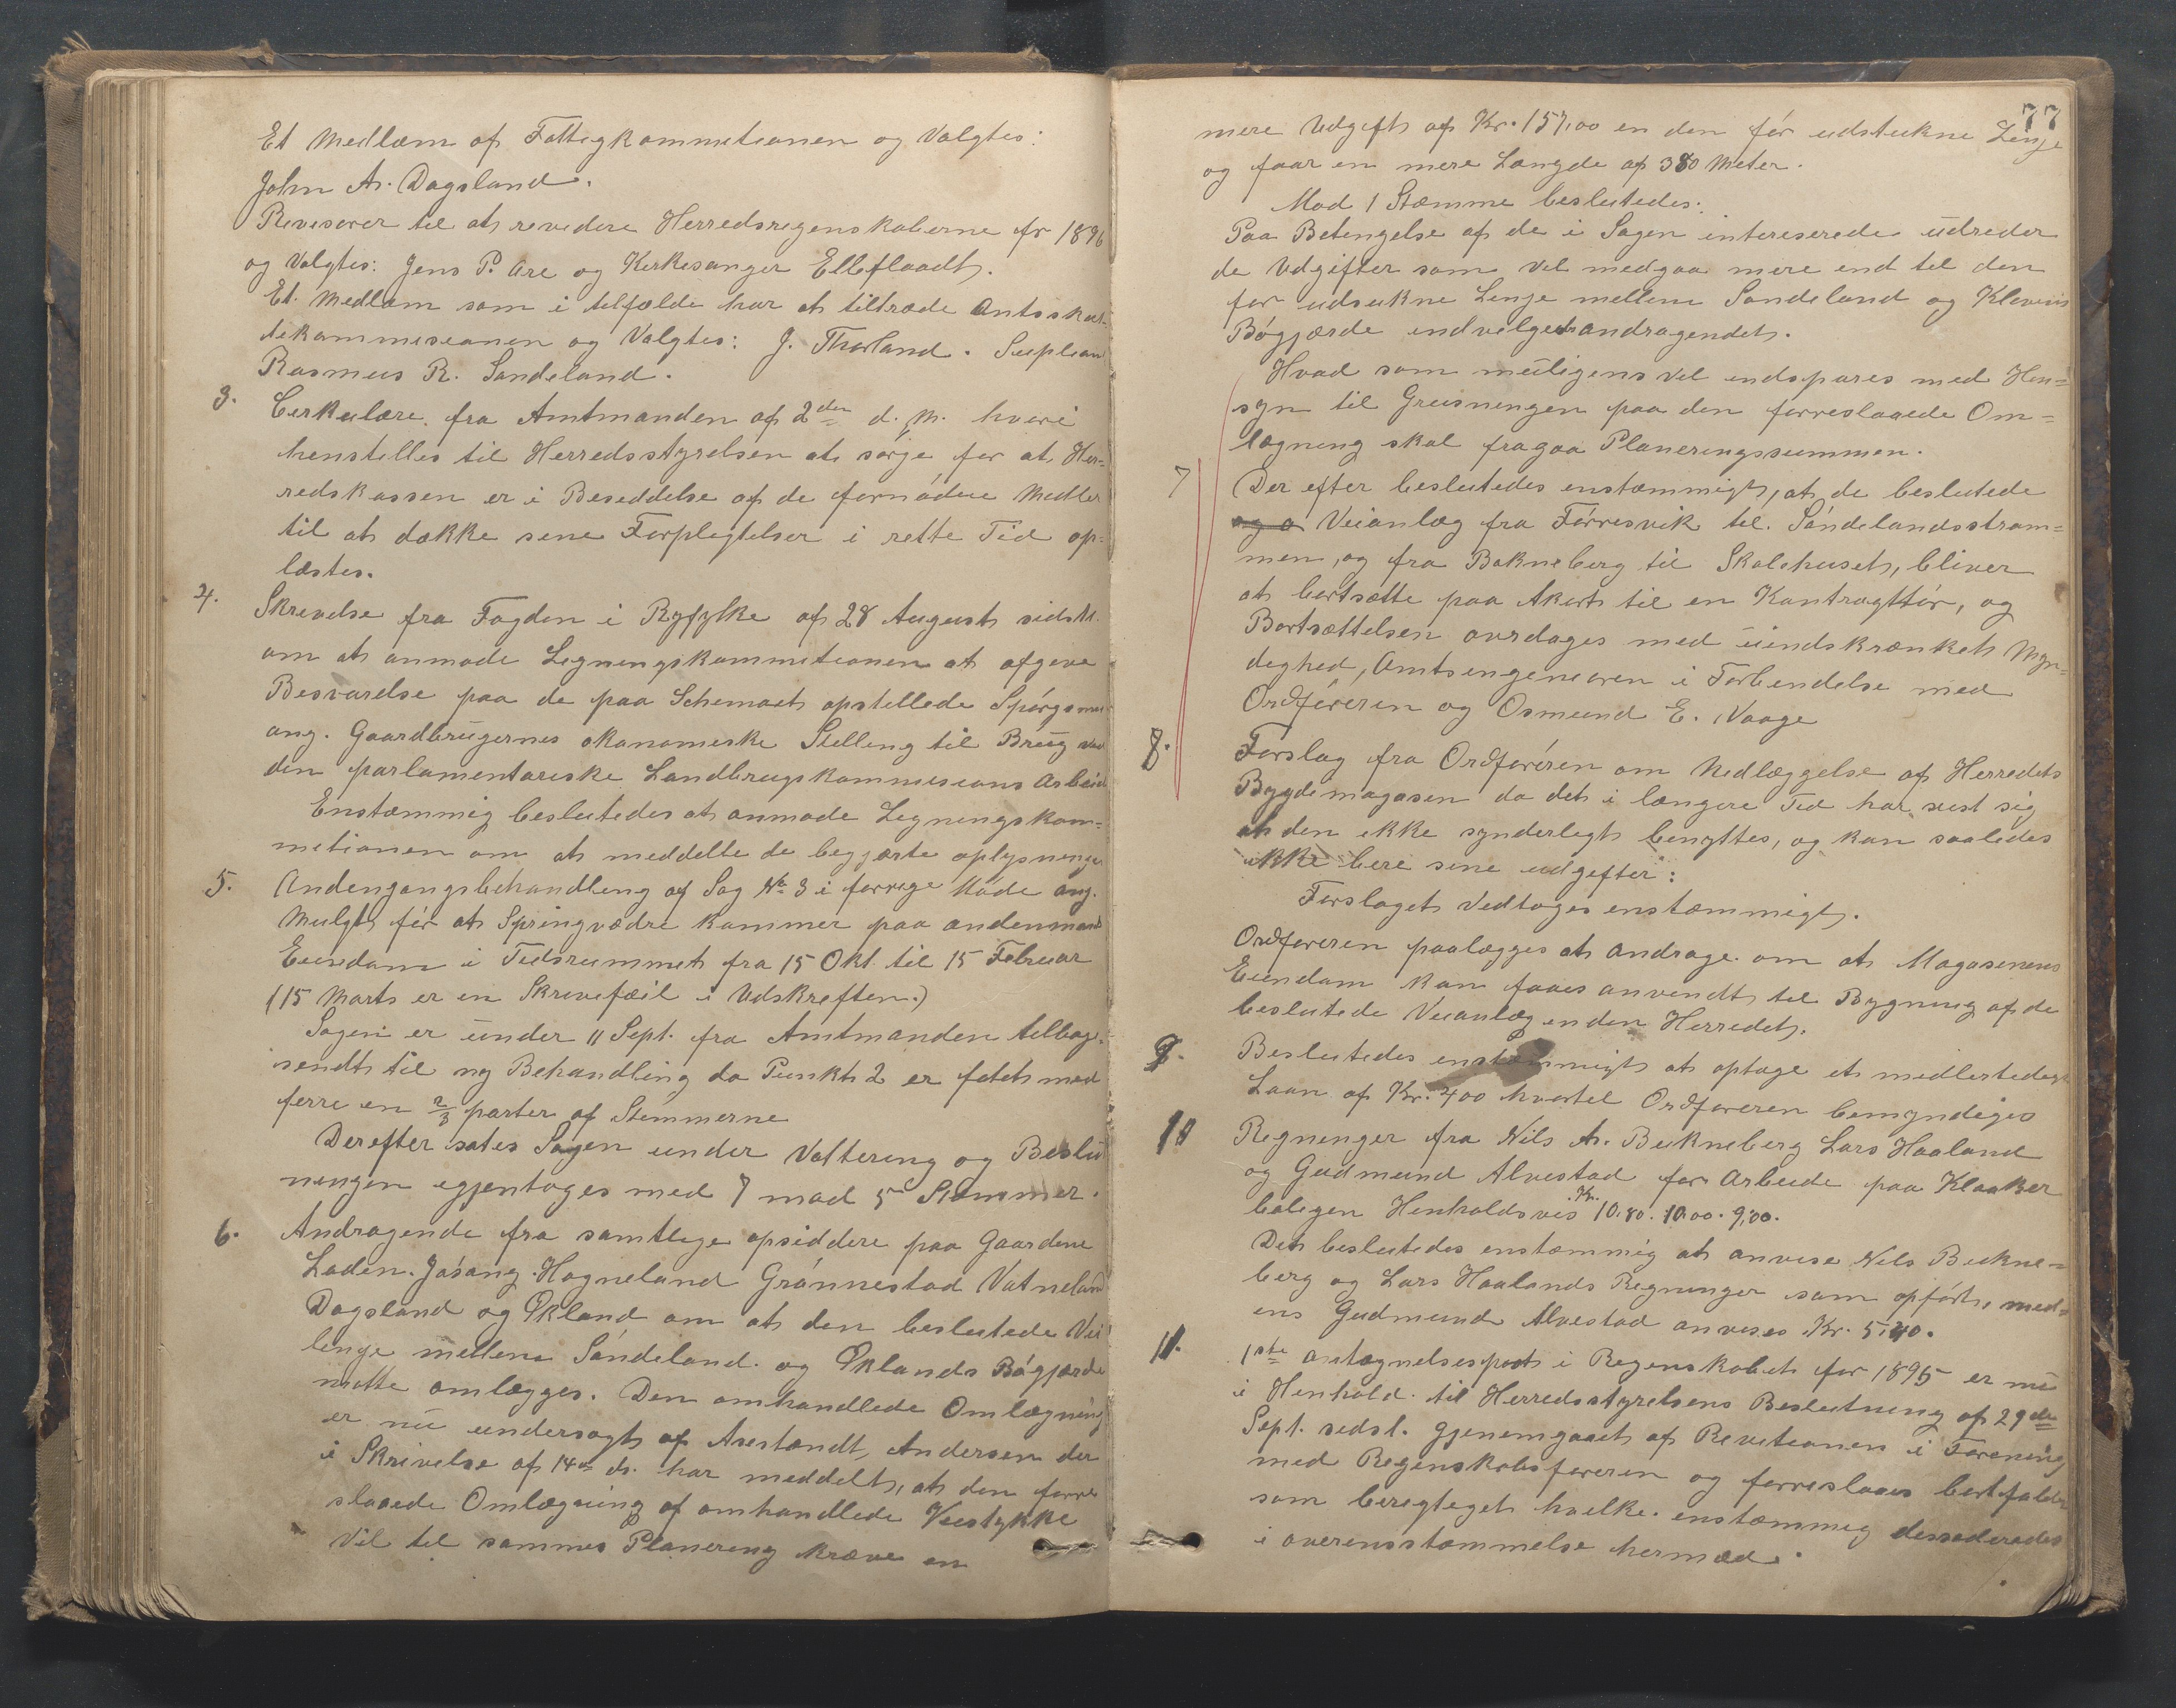 Et Medlæm af Fattigkommitionen og Valgtes:
John A. Dagsland.
Revisorer til at revidere Herredsregenskaberne for 1896
og Valgtes: Jens P. Are og Kirkesanger Elleflaadt.
Et Medlem som i tilfælde har at tiltræde Amtsskat-
tekommisionen og Valgtes: J. Thorland. Supleant
Rasmus R. Sandeland.
3. Cerkulære fra Amtmanden af 2den d. M. hvori
henstilles til Herredsstyrelsen at sørje for at Her=
redskassen er i Beseddelse af de fornødne Medler
til at dække sine Forplegtelser i rette Tid op=
læstes.
4. Skrevelse fra Fogden i Ryfylke af 28 August sidstl.
om at anmode Legningskommitionen at afgive
Besvarelse paa de paa Schemaet opstellede Spørgsmaal
ang. Gaardbrugernes økonomiske Stelling til Brug ved
den parlamentariske Landbrugskommisions Arbeide
Enstemmig besluttedes at anmode Legningskom=
mitionen om at meddelte de begjærte oplysninger
5. Andengangsbehandling af Sag No 3 i forrige Møde ang.
Mulgt før at Springvædre kommer paa andenmands
Eiendom i Tidsrummet fra 15 Okt. til 15 Februar
(15 Marts er en Skrivefeil i Udskreften.)
Sagen er under 11 Sept. fra Amtmanden tilbage=
sendt til ny Behandling da Punkt 2 er fatet med
ferre en 2/3 parter af Stemmerne
Derefter sates Sagen under Voltering og Beslu
ningen igjentoges med 7 mod 5 Stemmer.
6. Andragende fra samtlige opsiddere paa Gaardene
Laden. Jøsang. Hogneland Grønnestad Vatneland
Dagsland og Økland om at den besluttede Vei
linge mellem Søndeland og Øklands Bøgjærde
maatte omlægges. Den omhandlede Omlægning
er nu undersøgt af Assistandt, Andersen der
i Skrivelse af 14de ds. har meddelt, at den forre
slaaede Omlægning af omhandlede Veistykke
vil til sammes Planering kræve en
77
mere Udgift af Kr. 157,00 en den før udstukne Linje
og faar en mere Længde af 380 Meter.
Mod 1 Stemme besluttedes:
Paa Betengelse af de i Sagen intereserede udreder
de Udgifter som vil medgaa mere end til den
før udsukne Linje mellem Sandeland og Klevens
Bøgjærde indvelges andragendet.
Hvad som muligens vil indspares med Hen=
syn til Grusningen paa den forreslaaede Om=
lægning skal fragaa Planeringssummen.
7 Der efter besluttedes enstemmigt, at de besluttede
og a Veianlæg fra Førresvik til Søndelandsstrøm=
men, og fra Bokneberg til Skolehuset, bliver
at bortsætte paa Akort til en Kontragttør, og
Bortsættelsen overdages med uindskrænket Myn=
deghed, Amtsengeniøren i Forbendelse med
Ordføreren og Osmund E. Vaage
8. Forslag fra Ordføreren om Nedlæggelse af Herredets
Bygdemagasen da det i længere Tid har vist sig
at den ikke synderlegt benyttes, og kan saaledes
ikke bere sine udgefter:
Forslaget Vedtoges enstemmigt.
Ordføreren paalægges at andrage om at Magasenens
Eiendom kan faaes anvendt til Bygning af de
besluttede Veianlæg inden Herredet.
9. Besluttedes enstemmigt at optage et midlertidigt
Laan af Kr. 400 hvortil Ordføreren bemyndiges
10 Regninger fra Nils A. Bukneberg Lars Haaland
og Gudmund Alvestad for Arbeide paa Klokker
boligen Henholdsvis Kr. 10,80. 10,00. 9,00.
Det besluttedes enstemmig at anvise Nils Bukne=
berg og Lars Haalands Regninger som opført, med=
ens Gudmund Alvestad anvises Kr. 5,40.
11. 1ste antægnelsespost i Regenskabet for 1895 er nu
i Henhold til Herredsstyrelsens Beslutning af 29de
Sept. sidst. gjenemgaaet af Revitionen i Forening
med Regenskabsføreren og forreslaaes bortfaldt
som beregtiget hvilke enstemmig dessederedes
i overensstemmelse hermed.